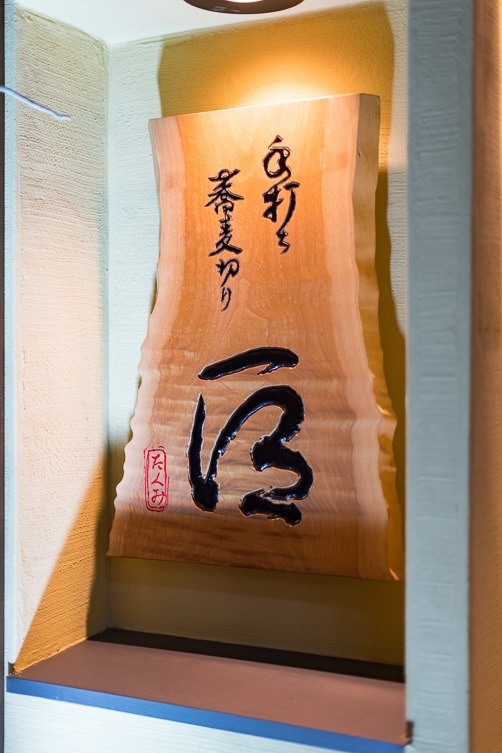 手打ち
蕎麦切り
匠
たくみ